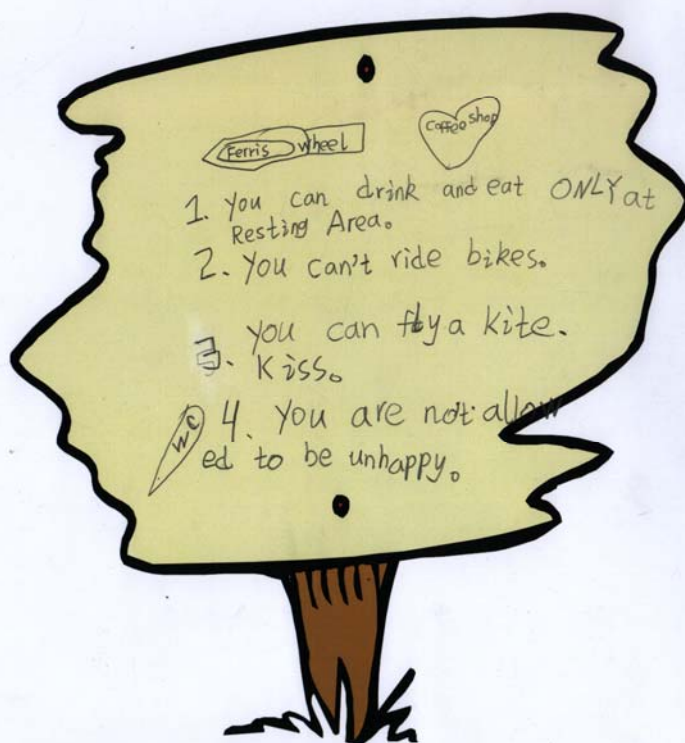 Ferris wheel
Coffee shop
1. You can drink and eat ONLY at
Resting Area。
2. You can't ride bikes。
3. You can fly a kite.
Kiss。
WC
4. You are not allow
ed to be unhappy。